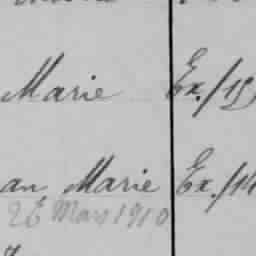 Marie Ex./19
an Marie Ex./14
26 Mars 1910